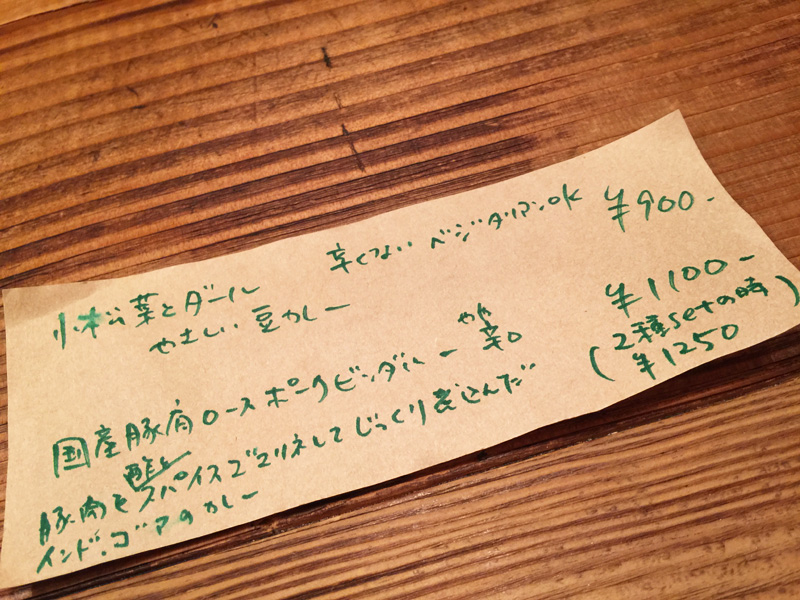 小松菜とダール 辛くない ベジタリアンOK ¥900-
やさしい豆カレー
国産豚肉ロースポークビンダルー やや辛口 ¥1100-
(2種setの時 ¥1250)
豚肉を酢とスパイスでマリネしてじっくり煮込んだ
インド・ゴアのカレー